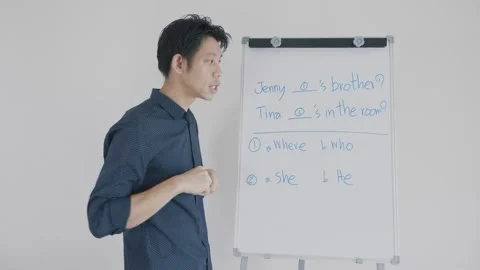 Jenny ① 's brother?
Tina ② 's in the room?
① a. Where b. Who
② a. She b. He